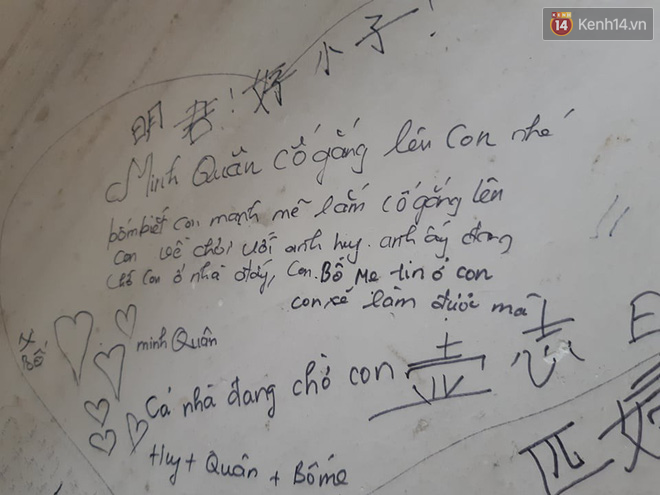 Kenh14.vn
明君!好小子!
Minh Quân cố gắng lên con nhé
bố mbiết con mạnh mẽ lắm cố gắng lên
con về chơi với anh huy. anh ấy đang
chờ con ở nhà đấy, con. Bố Mẹ tin ở con
con sẽ làm được mà
Bố
minh Quân
Cả nhà đang chờ con
Huy + Quân + Bố mẹ